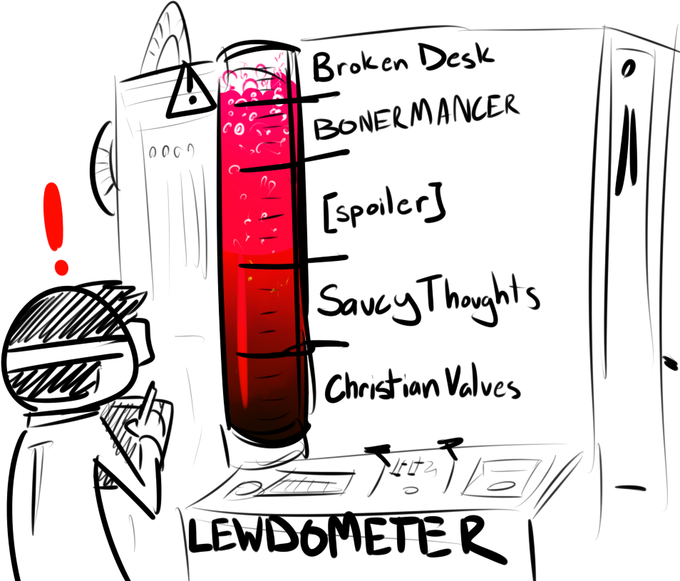 Broken Desk
BONERMANCER
[spoiler]
Saucy Thoughts
Christian Valves
LEWDOMETER